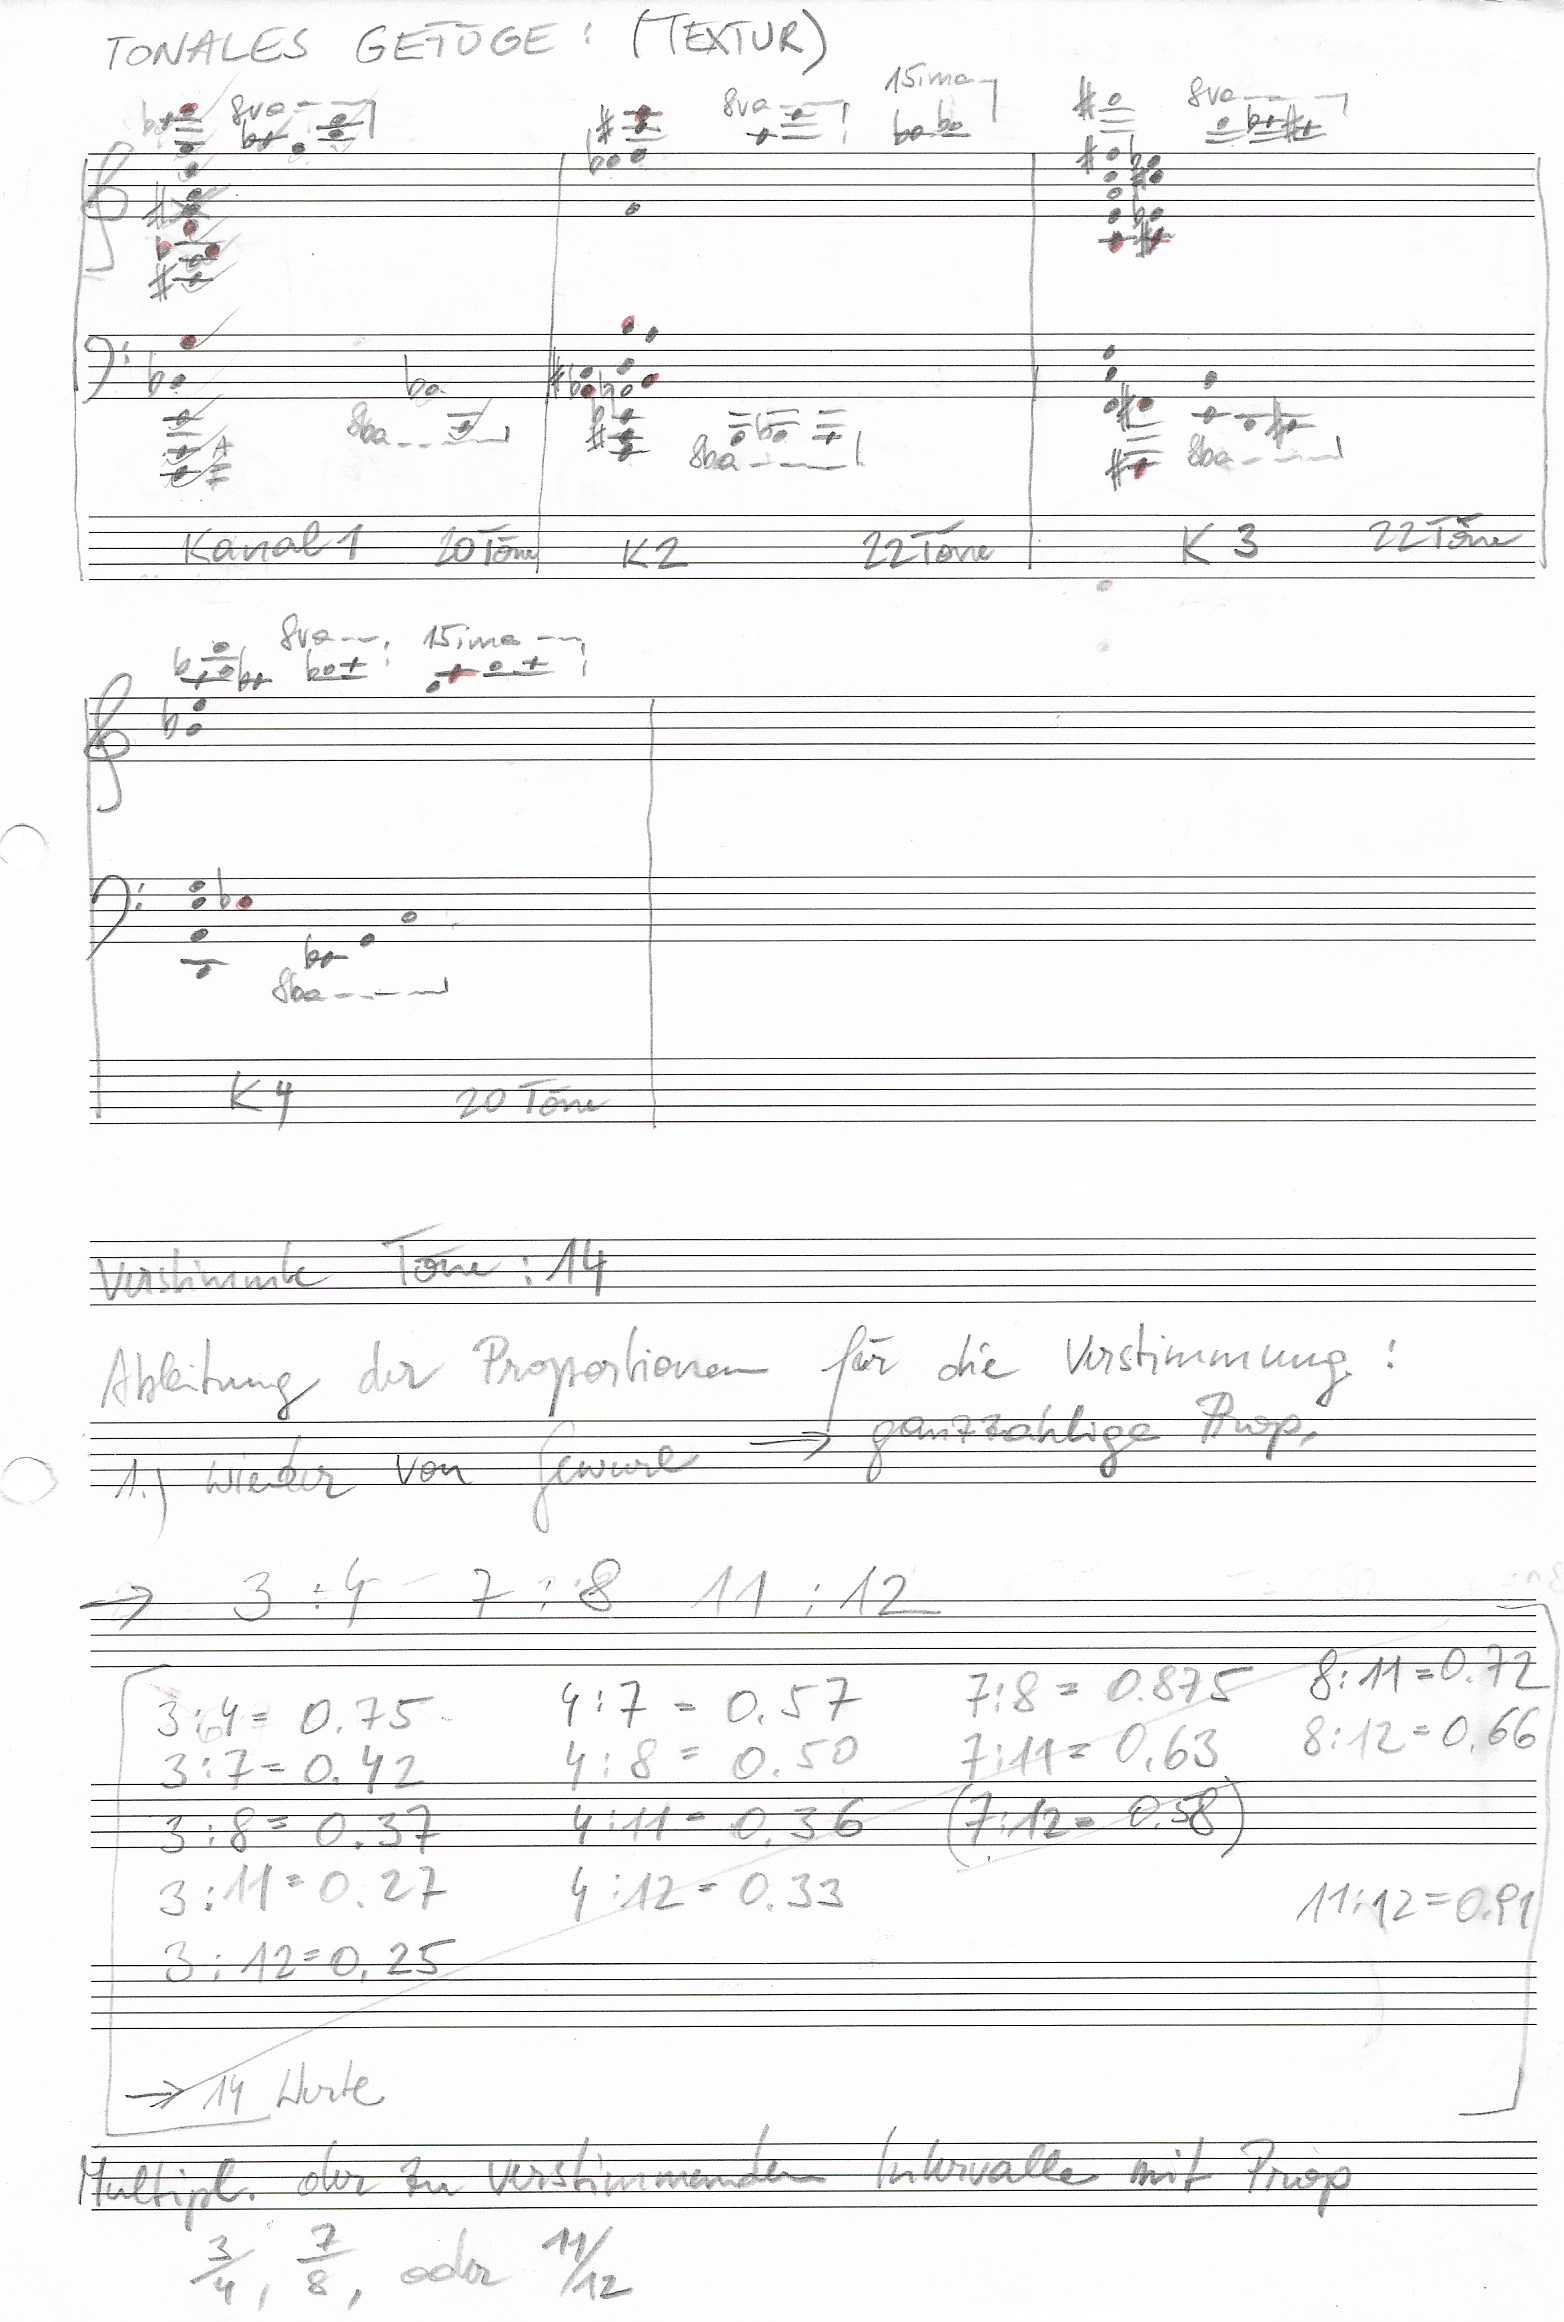 TONALES GEFÜGE: (TEXTUR)
8va 8va 15ima 8va
8ba 8ba 8ba
Kanal 1 20 Töne K2 22 Töne K 3 22 Töne
8va 15ima
8ba
K4 20 Töne
Verstimmte Töne: 14
Ableitung der Proportionen für die Verstimmung:
1.) wieder von → ganzzahlige Prop.
→ 3 : 4 7 : 8 11 : 12
3:4 = 0.75 4:7 = 0.57 7:8 = 0.875 8:11 = 0.72
3:7 = 0.42 4:8 = 0.50 7:11 = 0.63 8:12 = 0.66
3:8 = 0.37 4:11 = 0.36 (7:12 = 0.58)
3:11 = 0.27 4:12 = 0.33 11:12 = 0.91
3:12 = 0.25
→ 14 Werte
Multipl. der zu verstimmenden Intervalle mit Prop
3/4, 7/8, oder 11/12